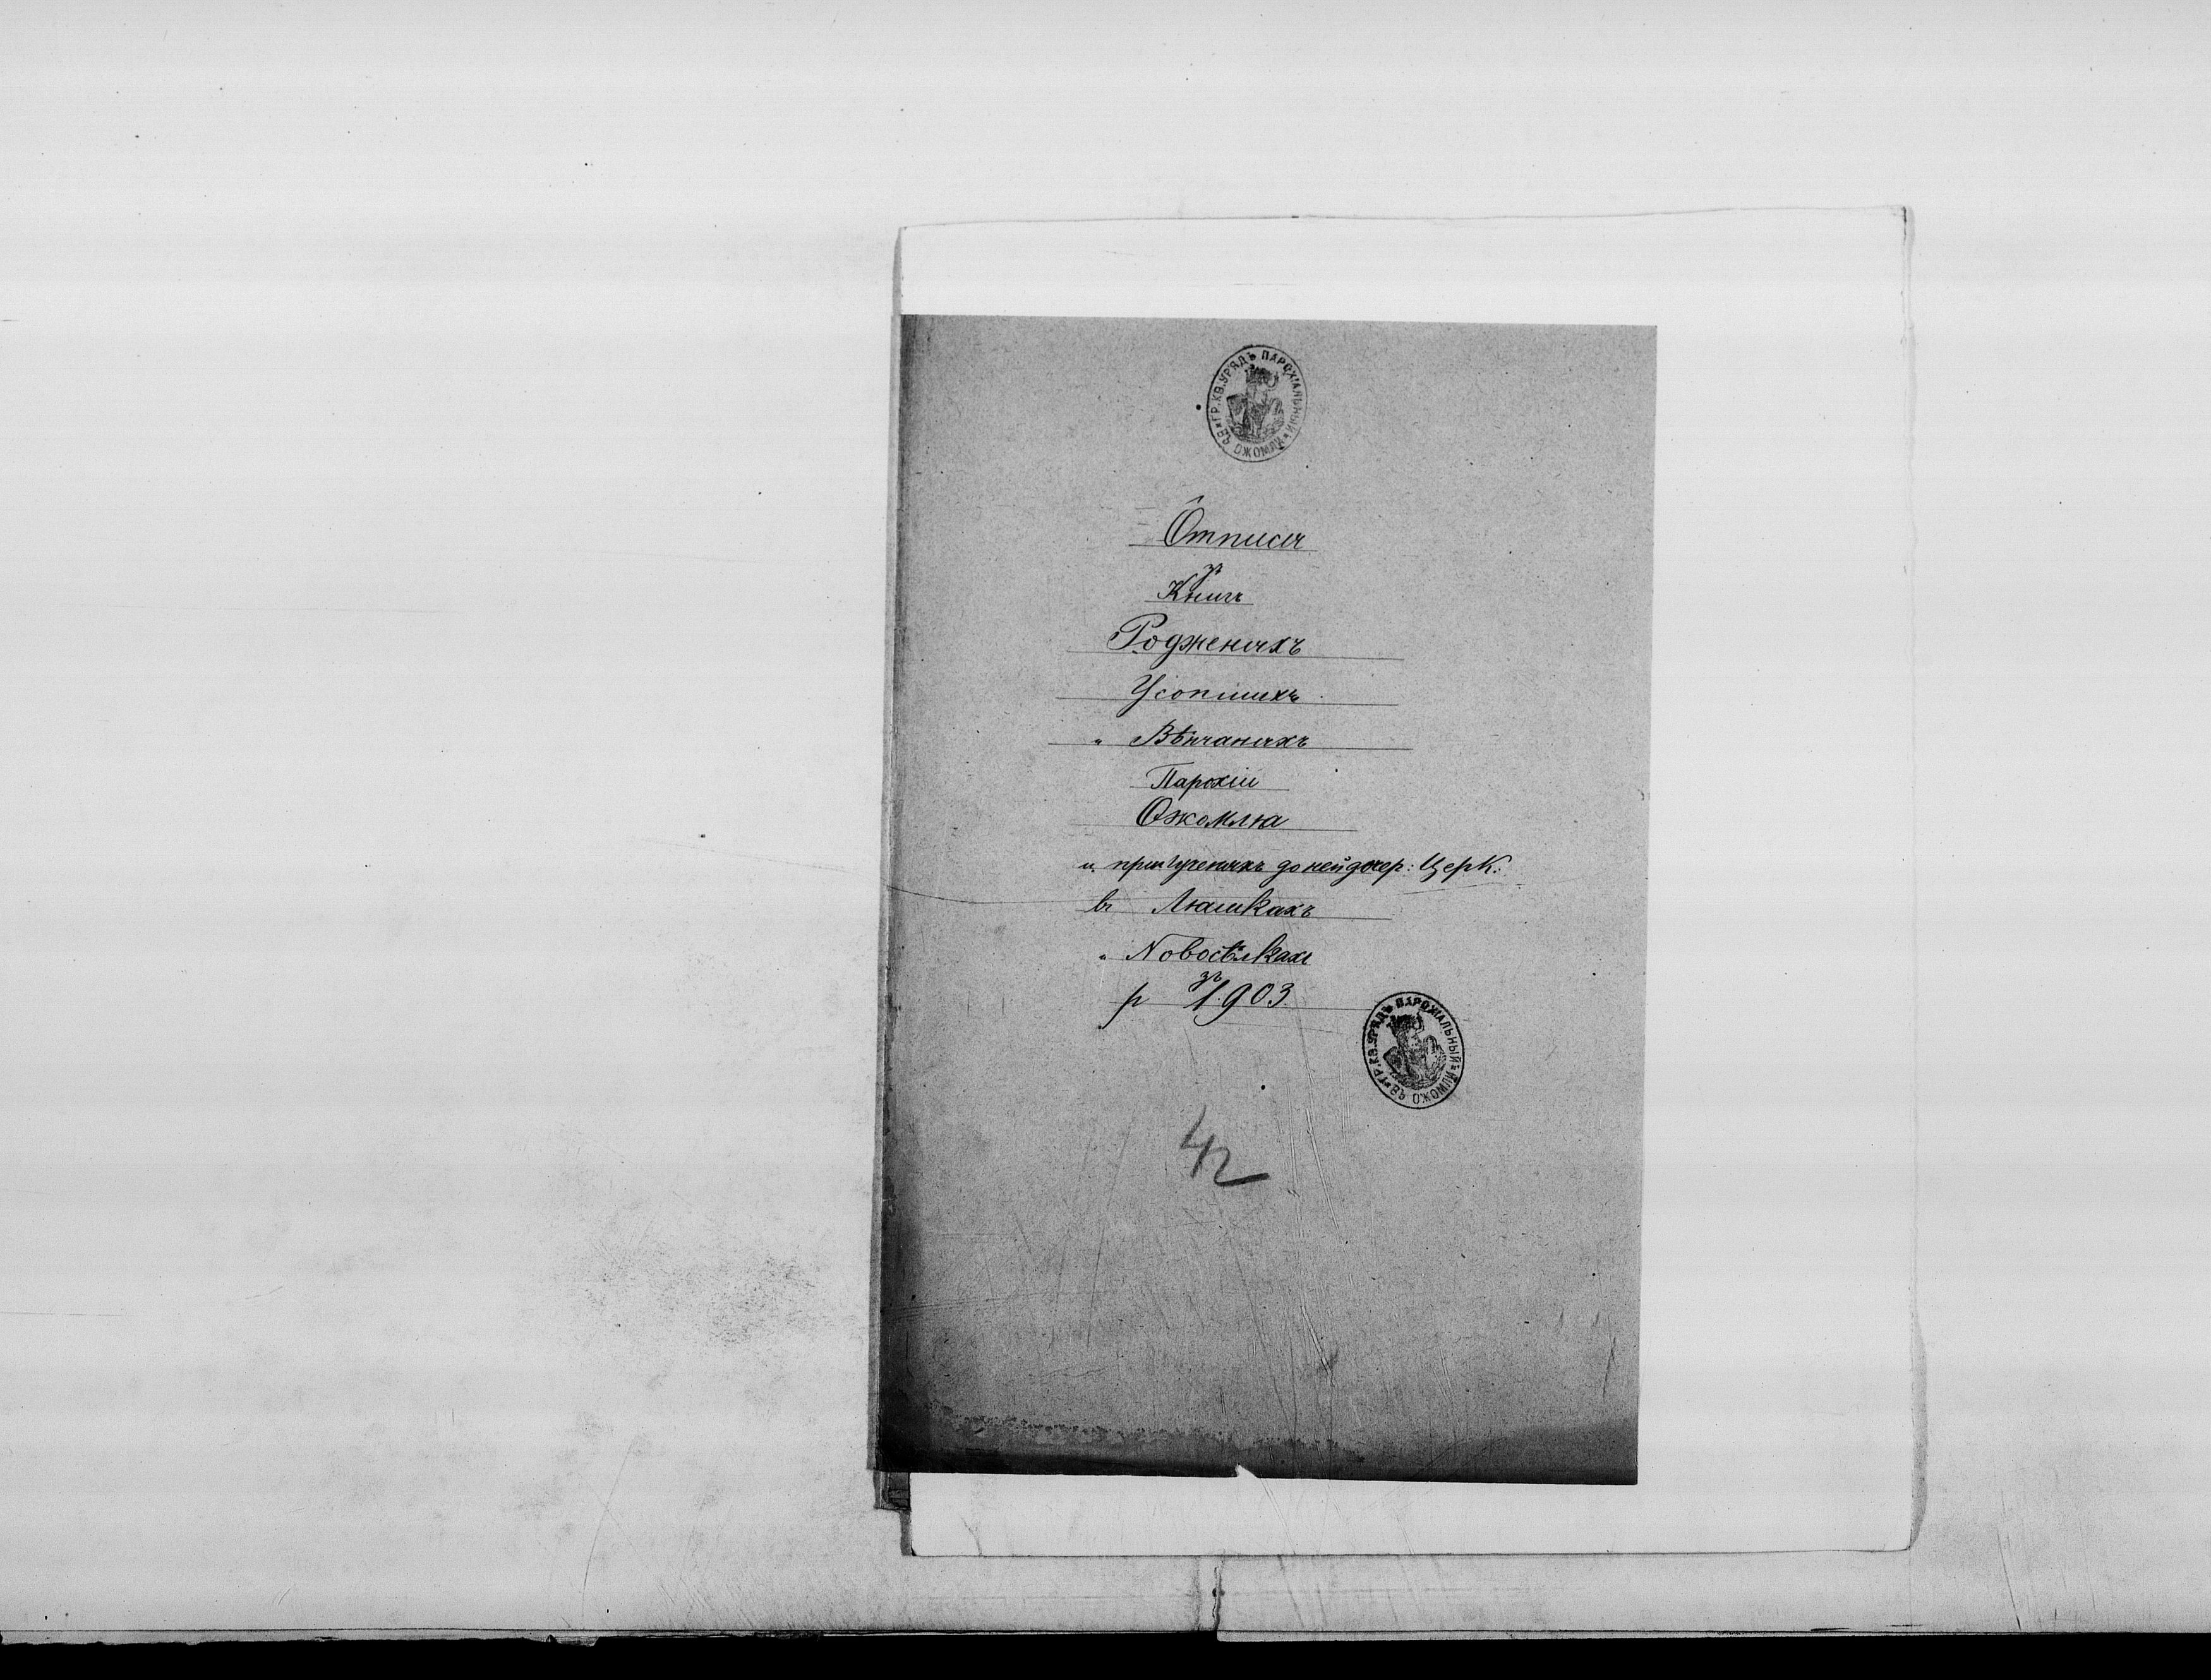 ГР.КВ.УРЯДЪ ПАРОХІАЛЬНЫЙ ВЪ ОЖОМЛИ
Ôтписы
зъ
Книгъ
Родженыхъ
Усопшихъ
" Вѣнчаныхъ
Парохіи
Ожомля
и прилученыхъ до ней дочер: Церк:
въ Люшкахъ
" Новосѣлкахъ
зъ
р 1903.
ГР.КВ.УРЯДЪ ПАРОХІАЛЬНЫЙ ВЪ ОЖОМЛИ
42